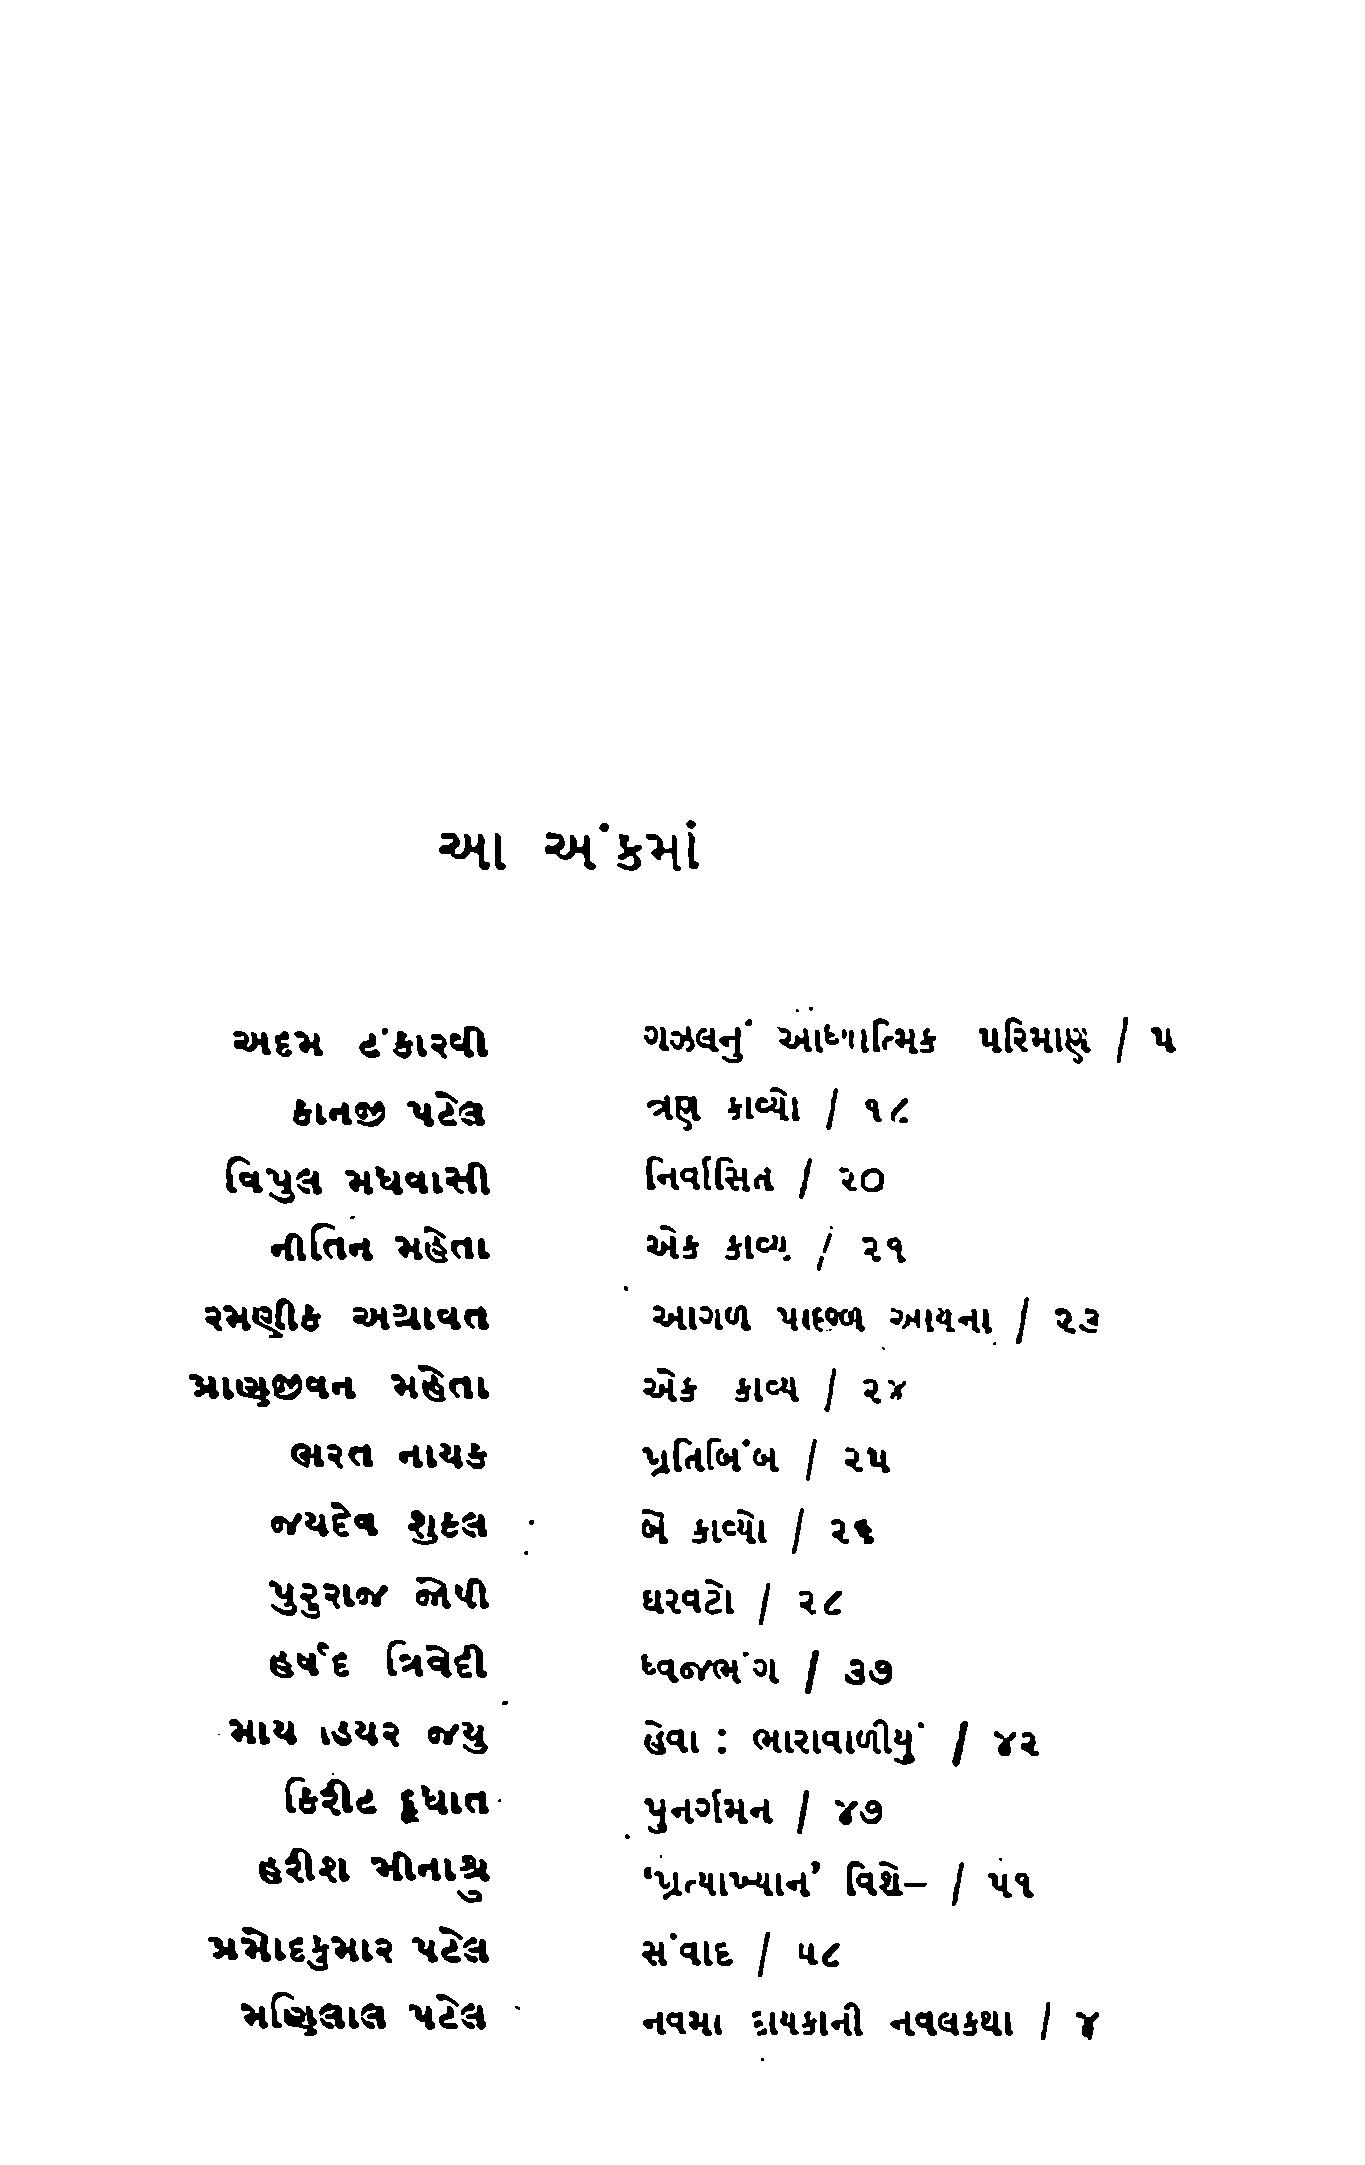 આ અંકમાં
અદમ ટંકારવી ગઝલનું આધ્યાત્મિક પરિમાણ / ૫
કાનજી પટેલ ત્રણ કાવ્યો / ૧૮
વિપુલ મધવાસી નિર્વાસિત / ૨૦
નીતિન મહેતા એક કાવ્ય / ૨૧
રમણીક અગ્રાવત આગળ પાછળ આયના / ૨૩
પ્રાણજીવન મહેતા એક કાવ્ય / ૨૪
ભરત નાયક પ્રતિબિંબ / ૨૫
જયદેવ શુક્લ બે કાવ્યો / ૨૬
પુરુરાજ જોષી ઘરવટો / ૨૮
હર્ષદ ત્રિવેદી ધ્વજભંગ / ૩૭
માય ડિયર જયુ હેવા : ભારાવાળીયું / ૪૨
કિરીટ દૂધાત પુનર્ગમન / ૪૭
હરીશ મીનાશ્રુ ‘પ્રત્યાખ્યાન’ વિશે– / ૫૧
પ્રમોદકુમાર પટેલ સંવાદ / ૫૮
મણિલાલ પટેલ નવમા દાયકાની નવલકથા / ૪